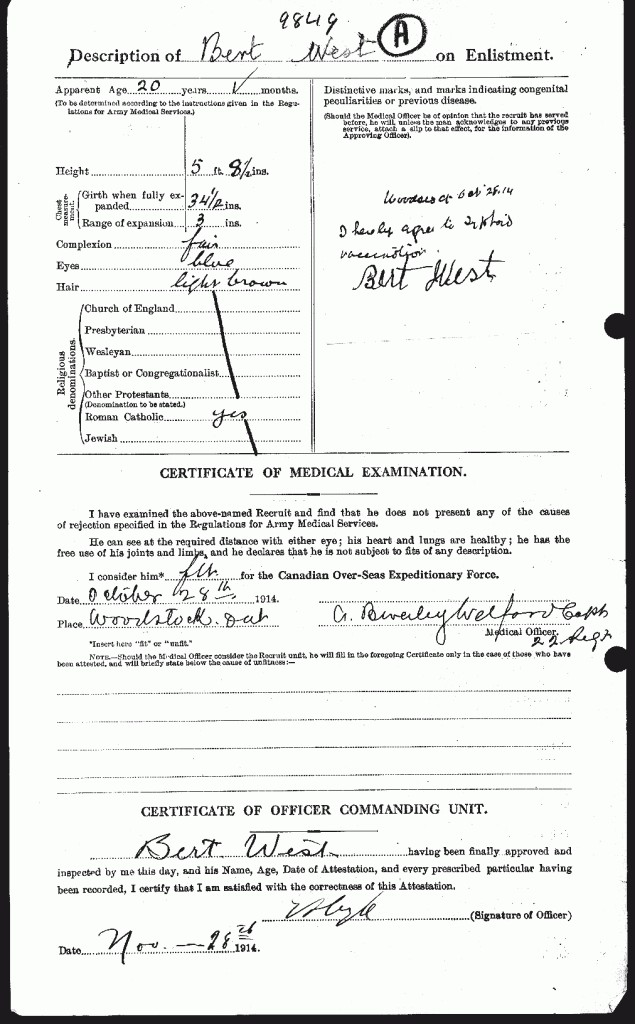 9849
Description of Bert West (A) on Enlistment.
Apparent Age 20 years months.
(To be determined according to the instructions given in the Regulations for Army Medical Services.)
Height 5 ft. 8½ ins.
Chest measurement.
Girth when fully expanded 34½ ins.
Range of expansion 3 ins.
Complexion fair
Eyes blue
Hair light brown
Religious denominations.
Church of England
Presbyterian
Wesleyan
Baptist or Congregationalist
Other Protestants
(Denomination to be stated.)
Roman Catholic yes
Jewish
Distinctive marks, and marks indicating congenital
peculiarities or previous disease.
(Should the Medical Officer be of opinion that the recruit has served
before, he will, unless the man acknowledges to any previous
service, attach a slip to that effect, for the information of the
Approving Officer).
Oct 28.14
I hereby agree to
vaccination.
Bert West
CERTIFICATE OF MEDICAL EXAMINATION.
I have examined the above-named Recruit and find that he does not present any of the causes
of rejection specified in the Regulations for Army Medical Services.
He can see at the required distance with either eye; his heart and lungs are healthy; he has the
free use of his joints and limbs, and he declares that he is not subject to fits of any description.
I consider him* fit for the Canadian Over-Seas Expeditionary Force.
Date October 28th 1914.
Place Woodstock. Ont
A. Beverley Welford Capt
Medical Officer.
22 Regt
*Insert here "fit" or "unfit."
NOTE.—Should the Medical Officer consider the Recruit unfit, he will fill in the foregoing Certificate only in the case of those who have
been attested, and will briefly state below the cause of unfitness:—
CERTIFICATE OF OFFICER COMMANDING UNIT.
Bert West having been finally approved and
inspected by me this day, and his Name, Age, Date of Attestation, and every prescribed particular having
been recorded, I certify that I am satisfied with the correctness of this Attestation.
(Signature of Officer)
Date Nov. — 28th 1914.